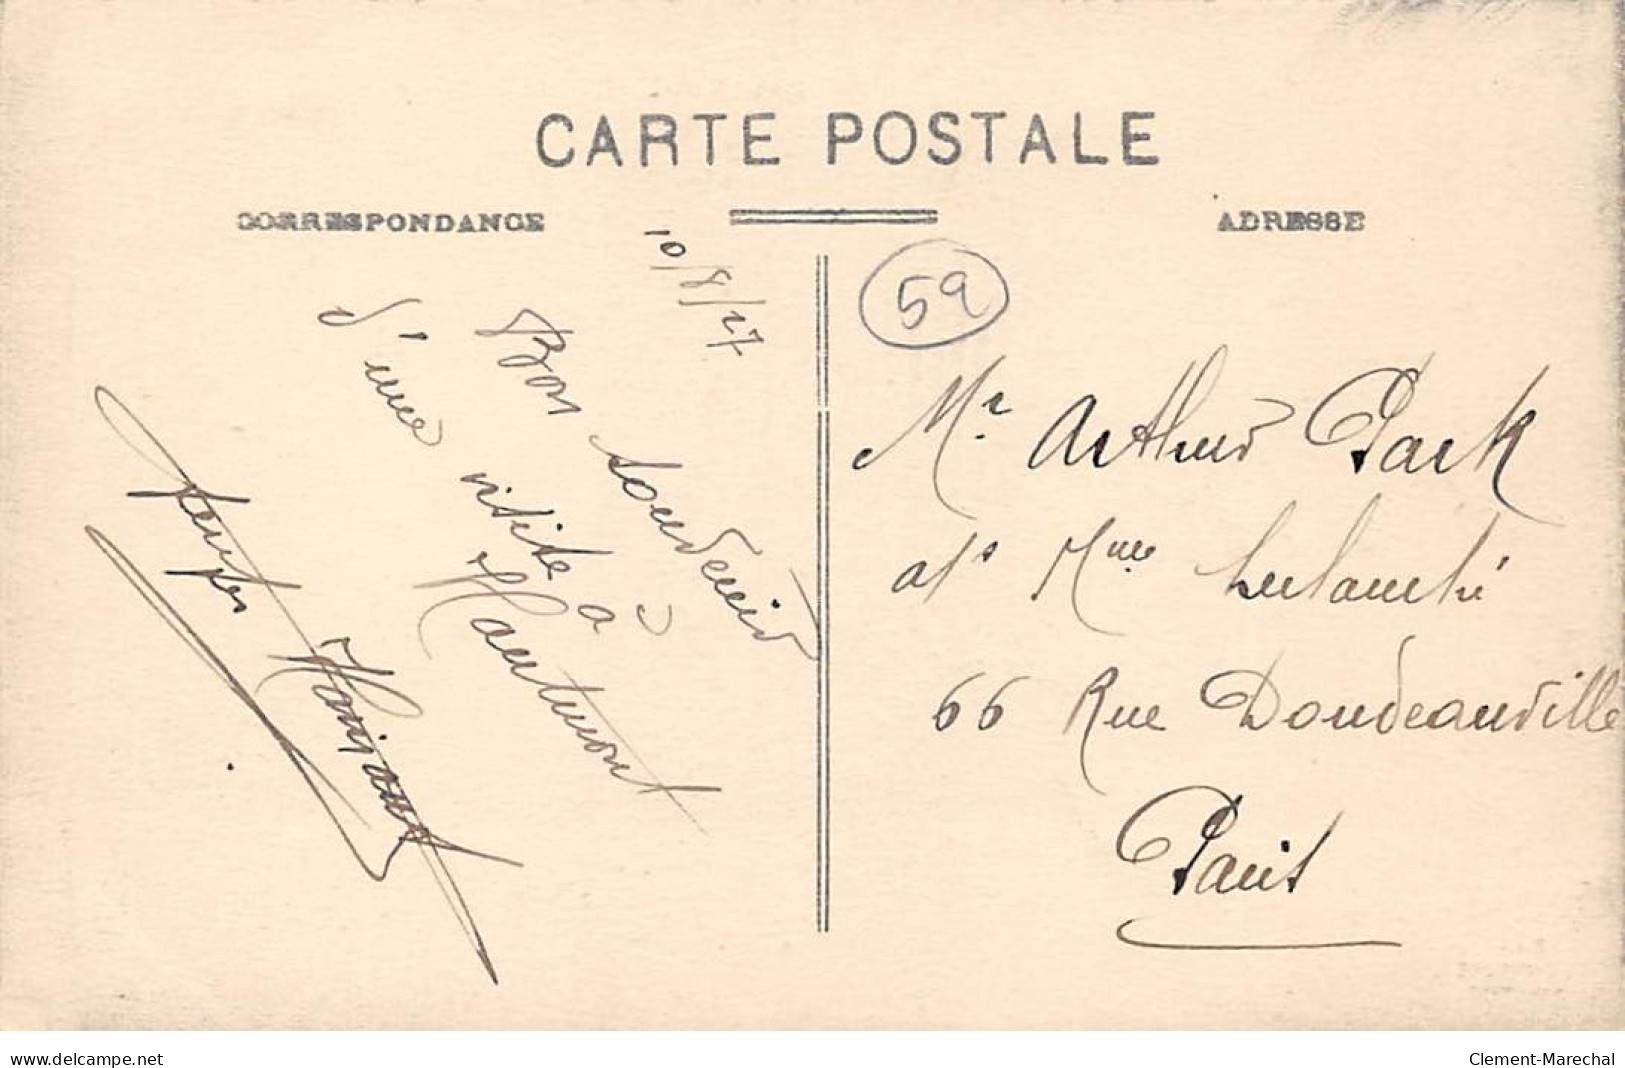 CARTE POSTALE
CORRESPONDANCE
ADRESSE
10/8/27
Bon souvenir
d'une visite à
Hautmont
59
Mr Arthur Park
a/s Mme
66 Rue Doudeauville
Paris
www.delcampe.net
Clement-Marechal